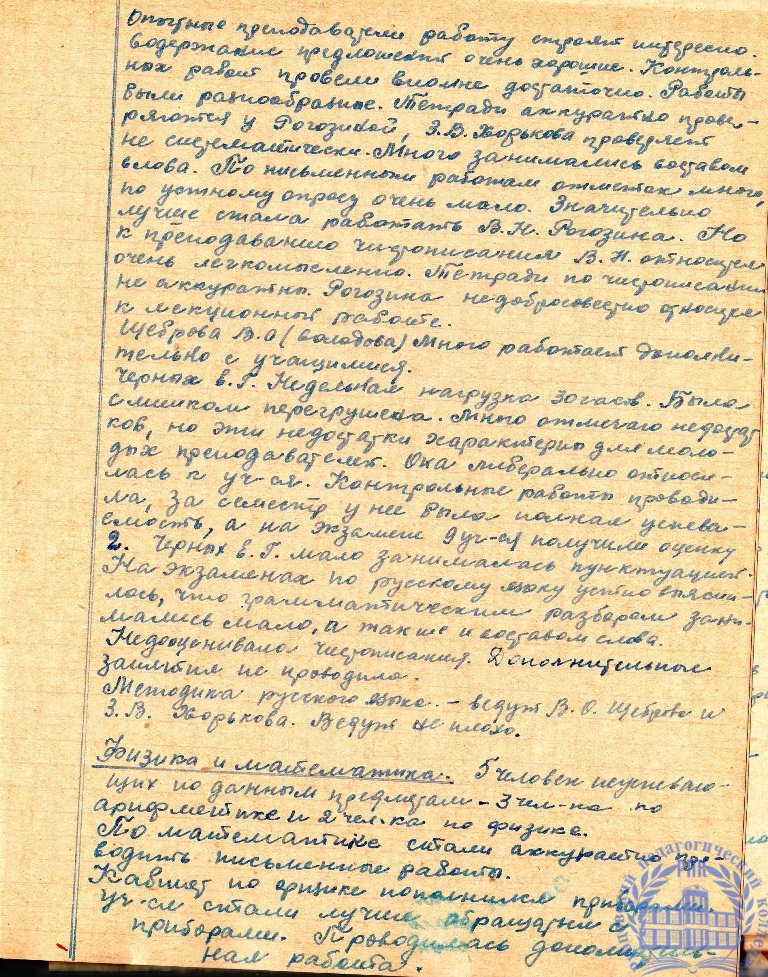 Опытные преподаватели работу строят интересно.
Содержание предложений очень хорошие. Контроль-
ных работ провели вполне достаточно. Работы
были разнообразные. Тетради аккуратно прове-
ряются у Рогозиной, З.В. Хорькова проверяет
не систематически. Много занимались составом
слова. По письменным работам отметок много,
по устному опросу очень мало. Значительно
лучше стала работать В.Н. Рогозина. Но
к преподаванию чистописания В.Н. относится
очень легкомысленно. Тетради по чистописанию
не аккуратны. Рогозина недобросовестно относится
к лекционной работе.
Щеброва В.О (Володова) Много работает дополни-
тельно с учащимися.
Черных в.Г. Недельная нагрузка 30 часов. Была
слишком перегружена. Много отмечаю недостат
ков, но эти недостатки характерны для моло-
дых преподавателей. Она либерально относи-
лась к уч-ся. Контрольные работы проводи-
ла, за семестр у нее была полная успева-
емость, а на экзамене 9 уч-ся получили оценку
2. Черных в.Г. мало занималась пунктуацией.
На экзаменах по русскому языку устно выясни-
лось, что грамматическим разбором зани-
мались мало, а также и составом слова.
Недооценивала чистописания. Дополнительные
занятия не проводила.
Методика русского языка - ведут В.О. Щеброва и
З.В. Хорькова. Ведут не плохо.
Физика и математика. 5 человек неуспеваю-
щих по данным предметам - 3 чел-ка по
арифметике и 2 чел-ка по физике.
По математике стали аккуратно про-
водить письменные работы.
Кабинет по физике пополнился приборами
уч-ся стали лучше обращаться с
приборами. Проводилась дополнитель-
ная работа.
педагогический колледж